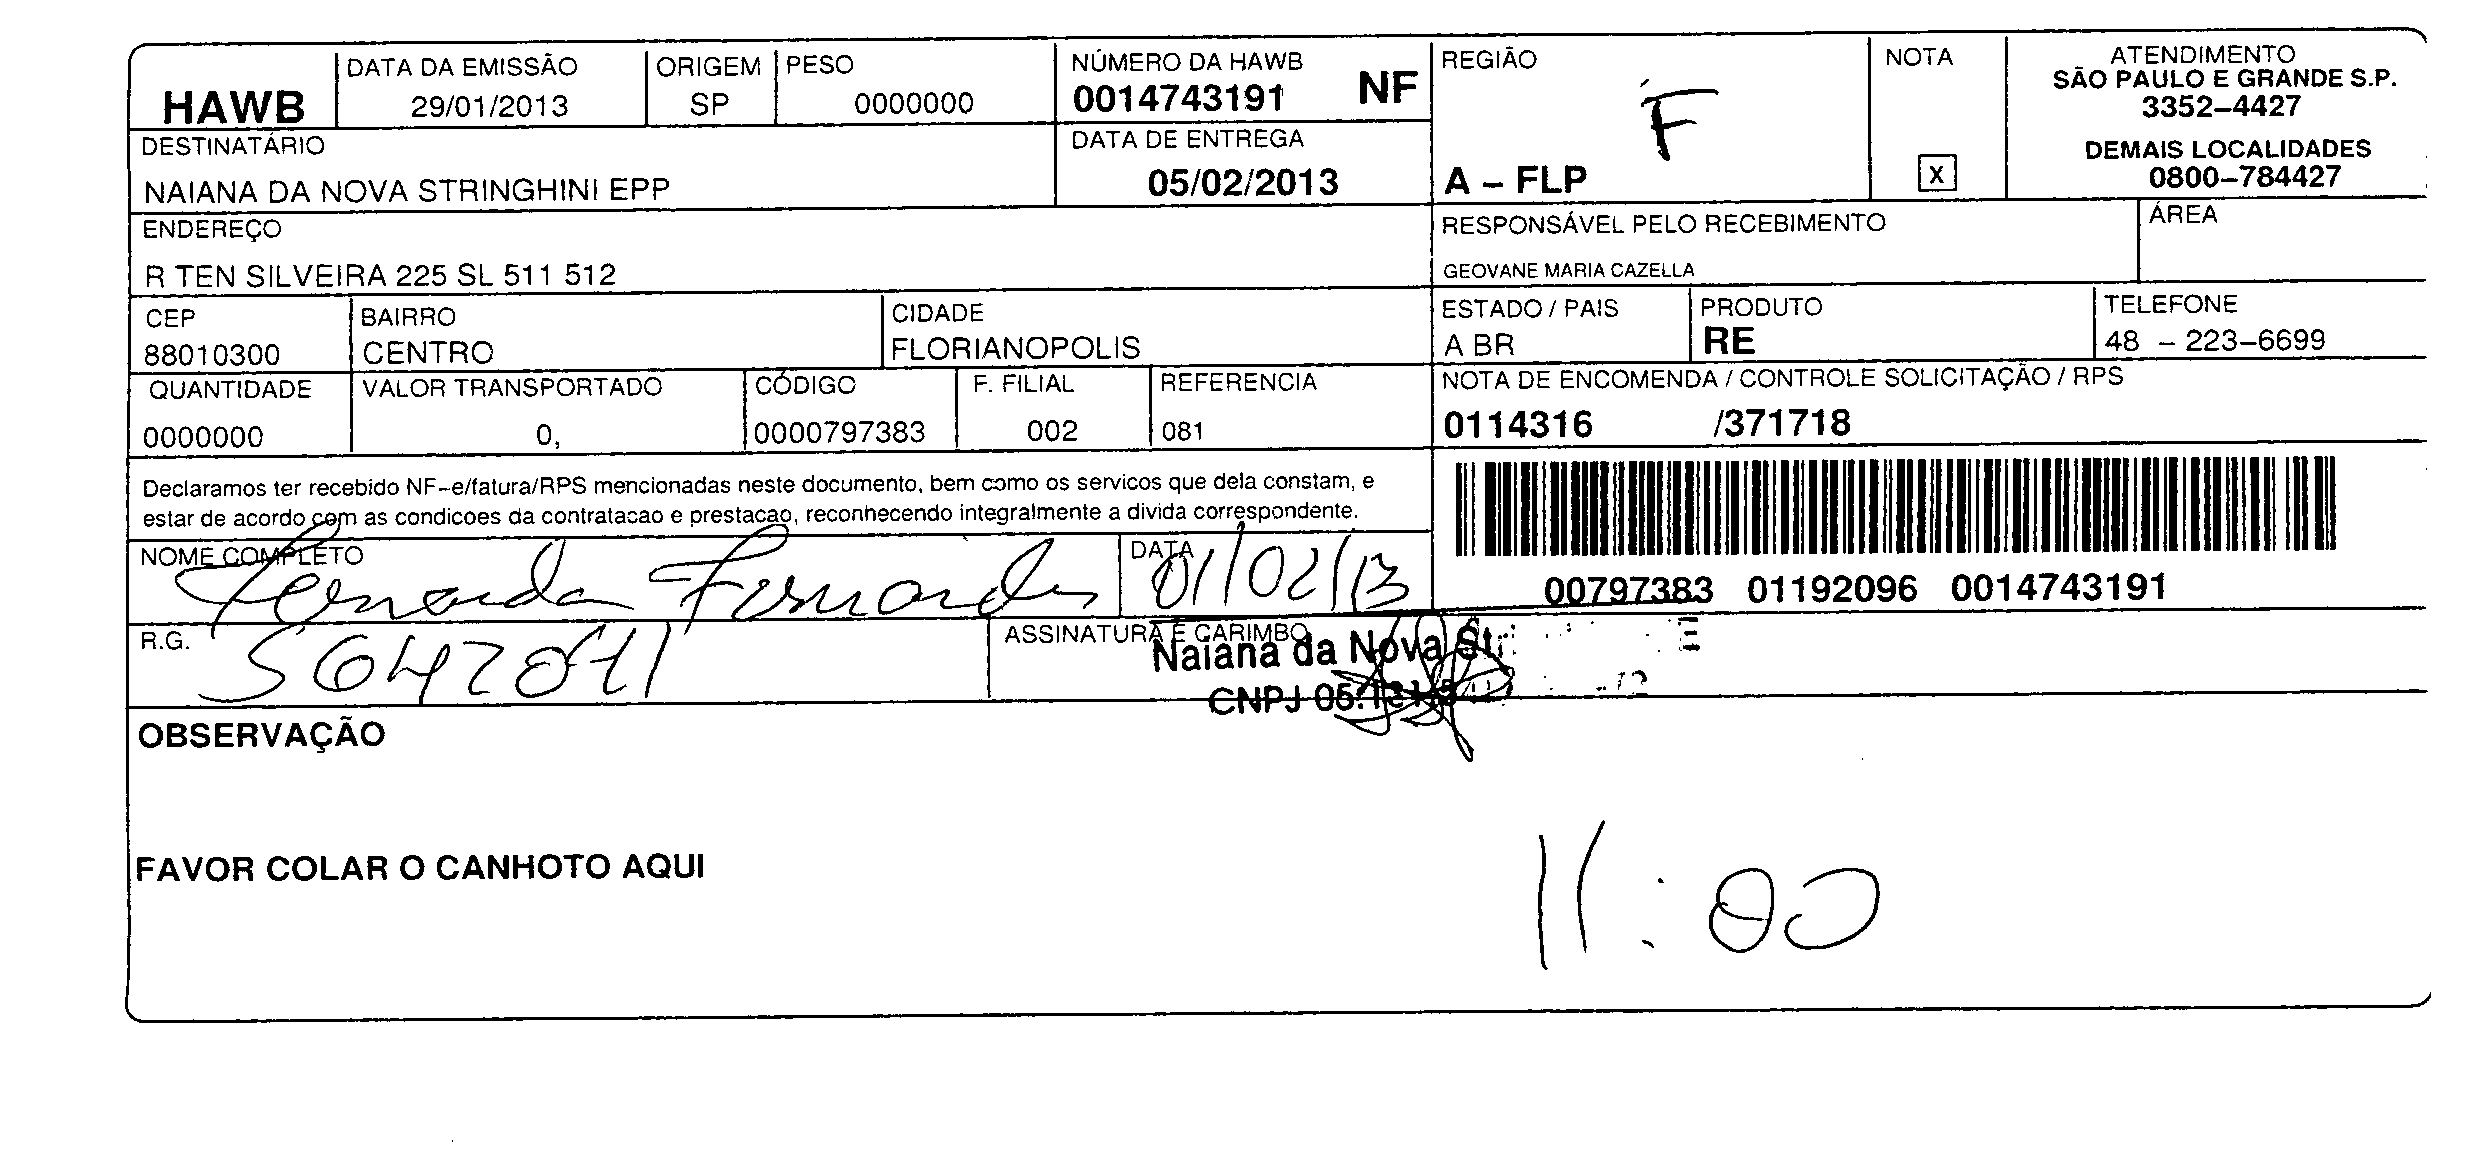 HAWB
DATA DA EMISSÃO
29/01/2013
ORIGEM
SP
PESO
0000000
NÚMERO DA HAWB
0014743191 NF
REGIÃO
F
A – FLP
NOTA
X
ATENDIMENTO
SÃO PAULO E GRANDE S.P.
3352–4427
DEMAIS LOCALIDADES
0800–784427
DESTINATÁRIO
NAIANA DA NOVA STRINGHINI EPP
DATA DE ENTREGA
05/02/2013
ENDEREÇO
R TEN SILVEIRA 225 SL 511 512
RESPONSÁVEL PELO RECEBIMENTO
GEOVANE MARIA CAZELLA
ÁREA
CEP
88010300
BAIRRO
CENTRO
CIDADE
FLORIANOPOLIS
ESTADO / PAIS
A BR
PRODUTO
RE
TELEFONE
48 – 223–6699
QUANTIDADE
0000000
VALOR TRANSPORTADO
0,
CÓDIGO
0000797383
F. FILIAL
002
REFERENCIA
081
NOTA DE ENCOMENDA / CONTROLE SOLICITAÇÃO / RPS
0114316 /371718
Declaramos ter recebido NF–e/fatura/RPS mencionadas neste documento, bem como os servicos que dela constam, e
estar de acordo com as condicoes da contratacao e prestacao, reconhecendo integralmente a divida correspondente.
00797383 01192096 0014743191
NOME COMPLETO
Fernanda Fernandes
DATA
01/02/13
R.G.
5642841
ASSINATURA E CARIMBO
Naiana da Nova
CNPJ
OBSERVAÇÃO
FAVOR COLAR O CANHOTO AQUI
11:00